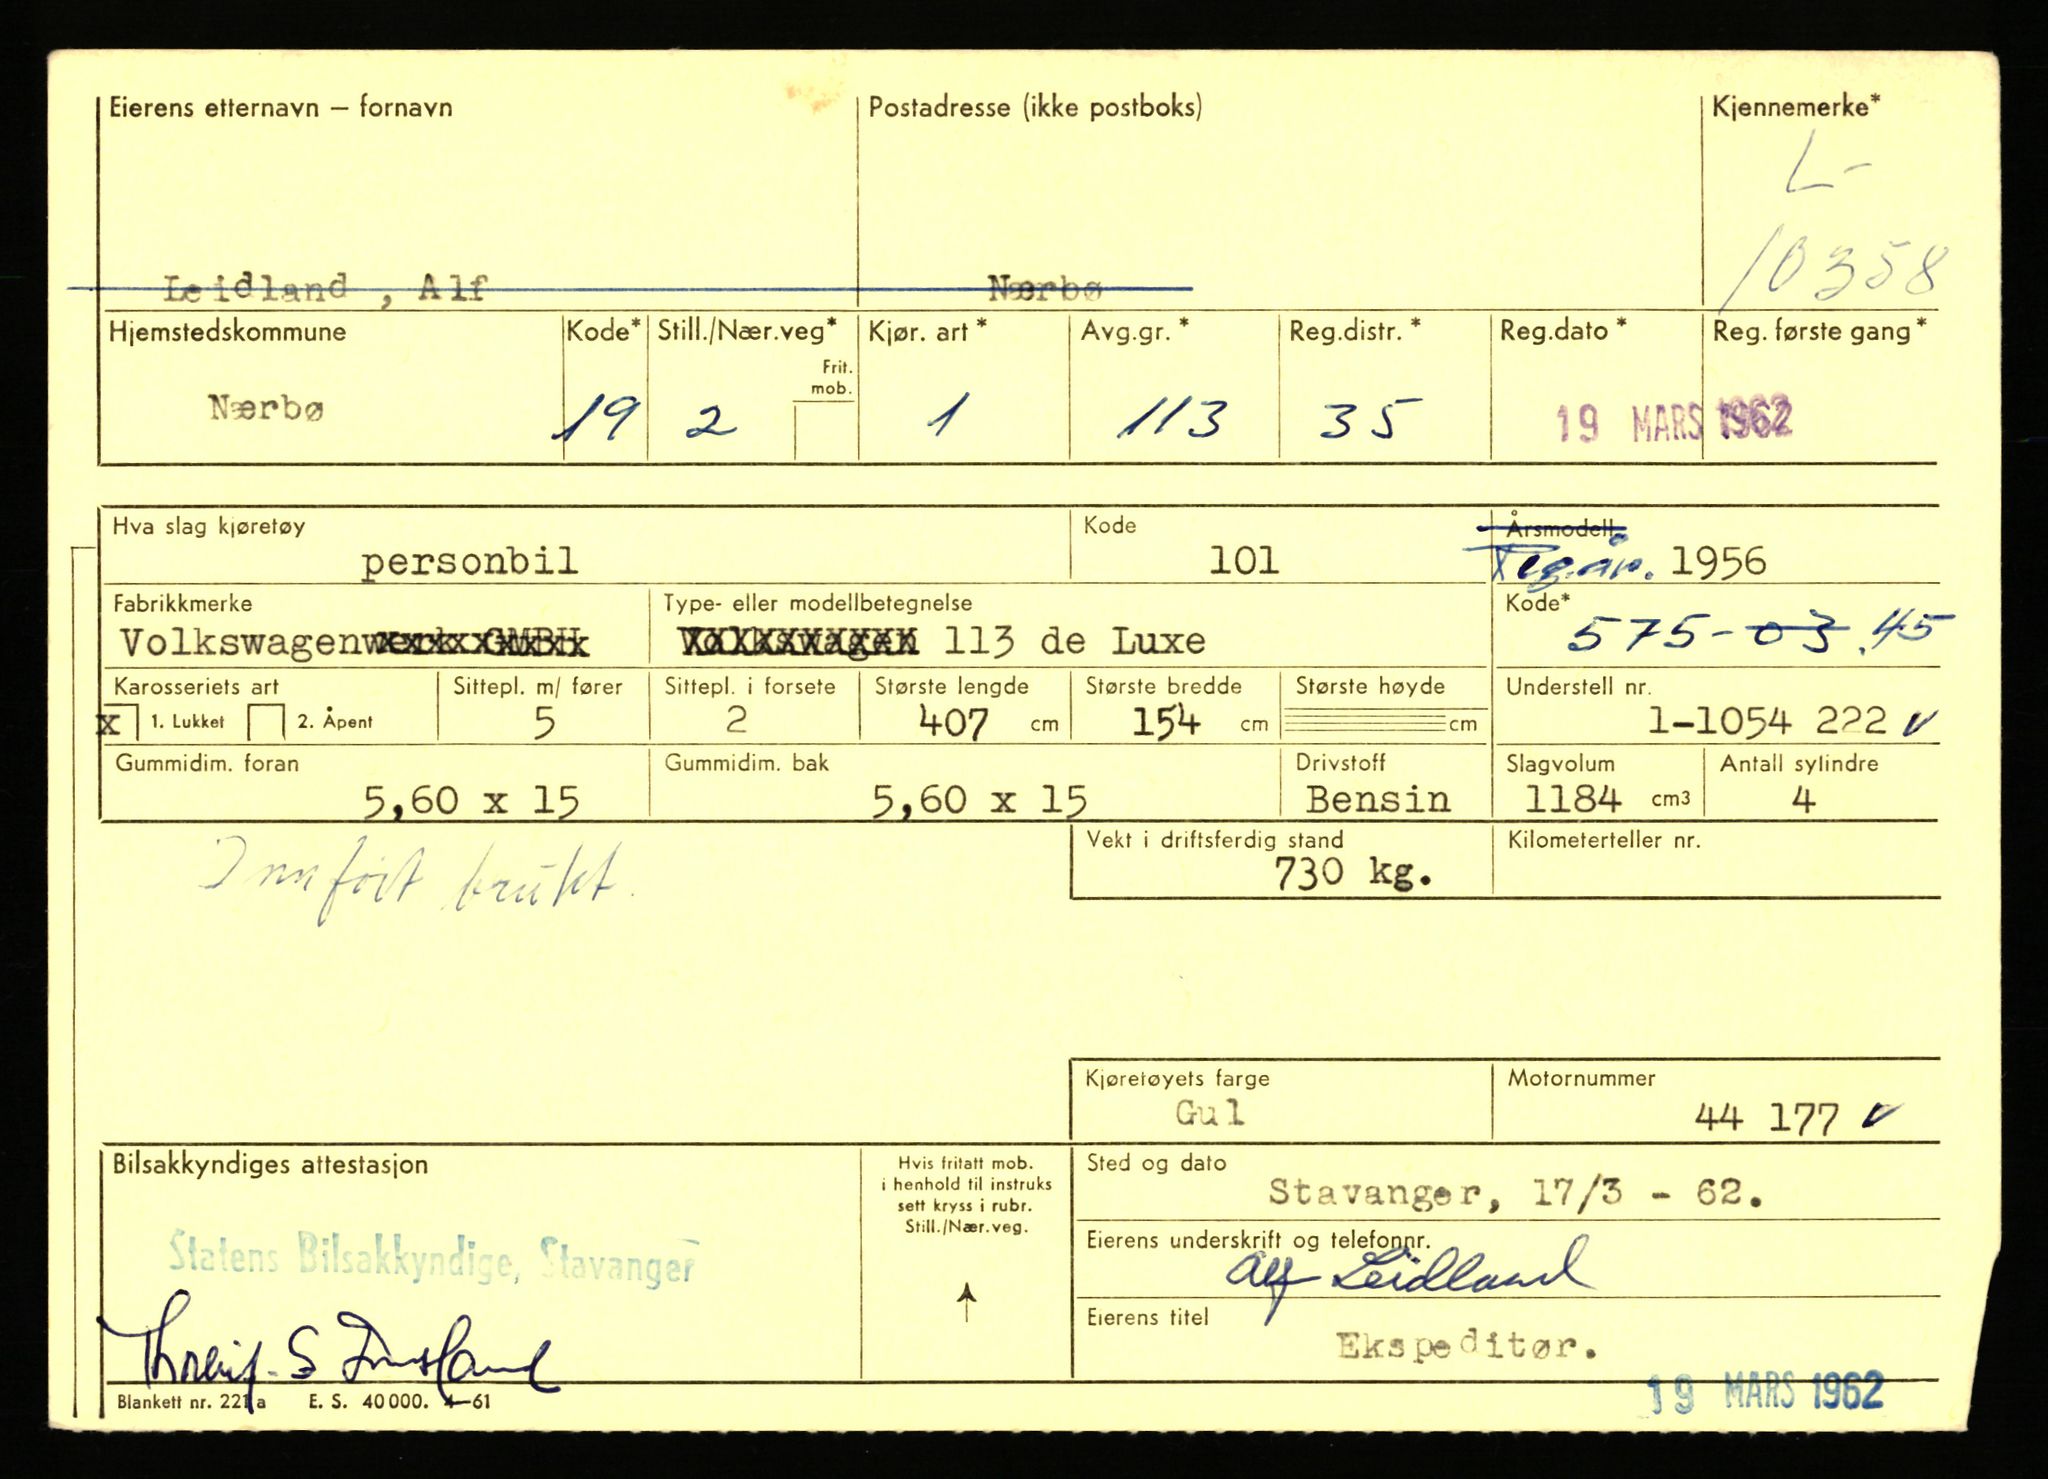 Eierens etternavn – fornavn Postadresse (ikke postboks) Kjennemerke*
L-
10358
Leidland, Alf Nærbø
Hjemstedskommune Kode* Still./Nær.veg* Kjør. art* Avg.gr.* Reg.distr.* Reg.dato* Reg. første gang*
Frit.
mob.
Nærbø 19 2 1 113 35 19 MARS 1962
Hva slag kjøretøy Kode Årsmodell
personbil 101 Reg.år. 1956
Fabrikkmerke Type- eller modellbetegnelse Kode*
Volkswagenwerk GMBH Volkswagen 113 de Luxe 575-03.45
Karosseriets art Sittepl. m/ fører Sittepl. i forsete Største lengde Største bredde Største høyde Understell nr.
x 1. Lukket 2. Åpent 5 2 407 cm 154 cm cm 1-1054 222
Gummidim. foran Gummidim. bak Drivstoff Slagvolum Antall sylindre
5,60 x 15 5,60 x 15 Bensin 1184 cm3 4
Vekt i driftsferdig stand Kilometerteller nr.
730 kg.
Innført brukt.
Kjøretøyets farge Motornummer
Gul 44 177
Bilsakkyndiges attestasjon Hvis fritatt mob.
i henhold til instruks
sett kryss i rubr.
Still./Nær.veg.
Sted og dato
Stavanger, 17/3 - 62.
Statens Bilsakkyndige, Stavanger
Eierens underskrift og telefonnr.
Alf Leidland
Eierens titel
Ekspeditør.
Blankett nr. 221 a E. S. 40 000. 4-61
19 MARS 1962